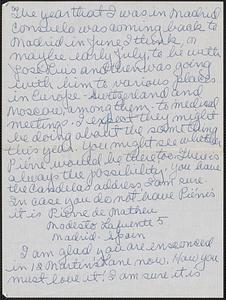 The year that I was in Madrid
Consuelo was coming back to
Madrid in June I think, or
maybe early July, to be with
José Luis and then was going
with him to various places
in Europe - Switzerland and
Moscow, among them - to medical
meetings. I expect they might
be doing about the same thing
this year. You might see whether
Pierre would be there too. There is
always the possibility. You have
the Candelas address, I am sure.
In case you do not have Pierre's
it is Pierre de Matheu
Modesto Lafuente 5
Madrid - Spain
I am glad you are ensconced
in 18 Martin's Lane now. How you
must love it! I am sure it is